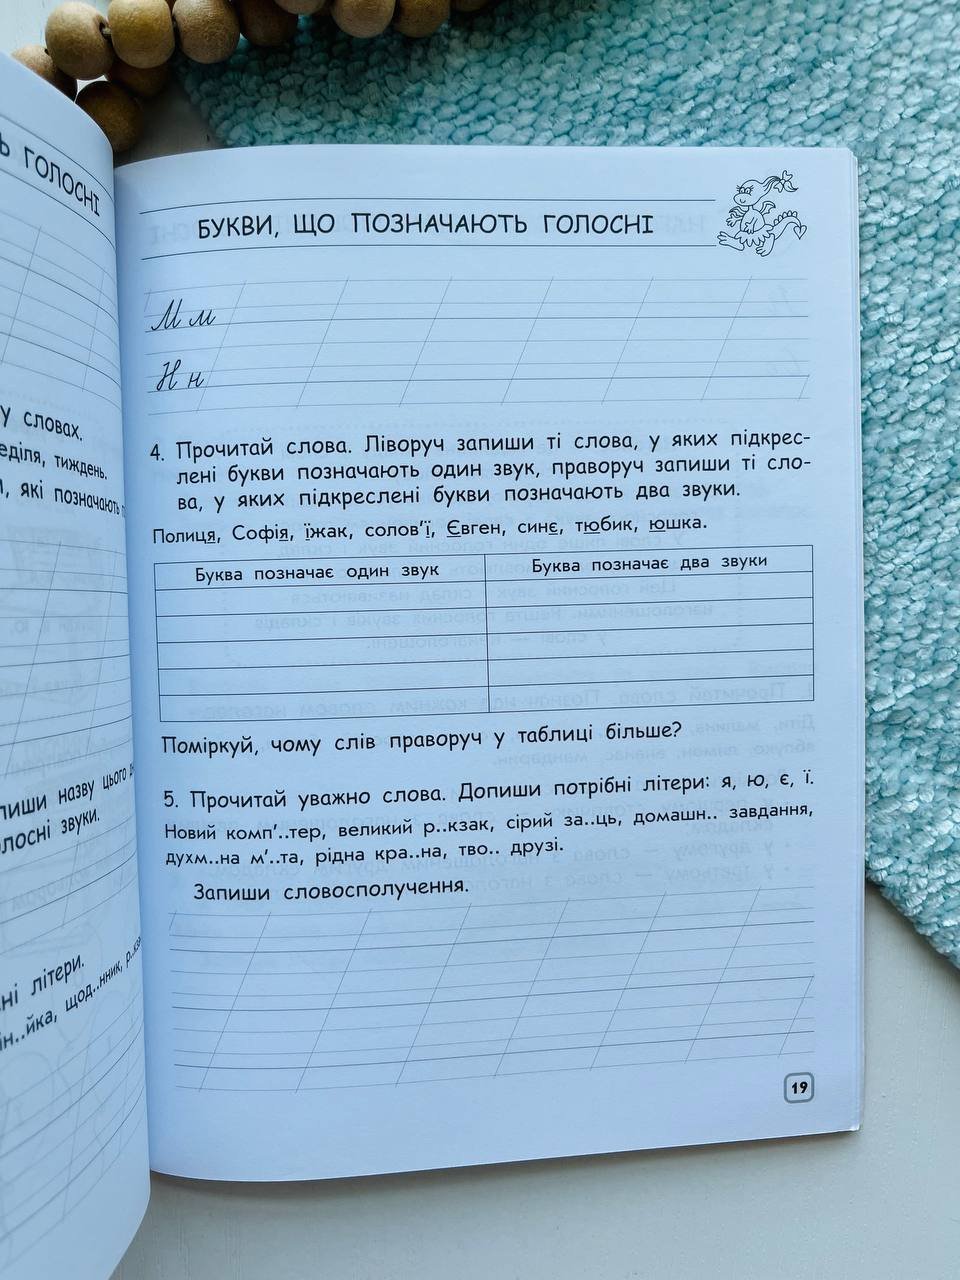 Ь ГОЛОСНІ
у словах.
еділя, тиждень.
які позначають
пиши назву цього
олосні звуки.
ні літери.
йка, щод..нник,
БУКВИ, ЩО ПОЗНАЧАЮТЬ ГОЛОСНІ
М м
Н н
4. Прочитай слова. Ліворуч запиши ті слова, у яких підкрес-
лені букви позначають один звук, праворуч запиши ті сло-
ва, у яких підкреслені букви позначають два звуки.
Полиця, Софія, їжак, солов'ї, Євген, синє, тюбик, юшка.
Буква позначає один звук
Буква позначає два звуки
Поміркуй, чому слів праворуч у таблиці більше?
5. Прочитай уважно слова. Допиши потрібні літери: я, ю, є, ї.
Новий комп'..тер, великий р..кзак, сірий за..ць, домашн.. завдання,
духм..на м'..та, рідна кра..на, тво.. друзі.
Запиши словосполучення.
19